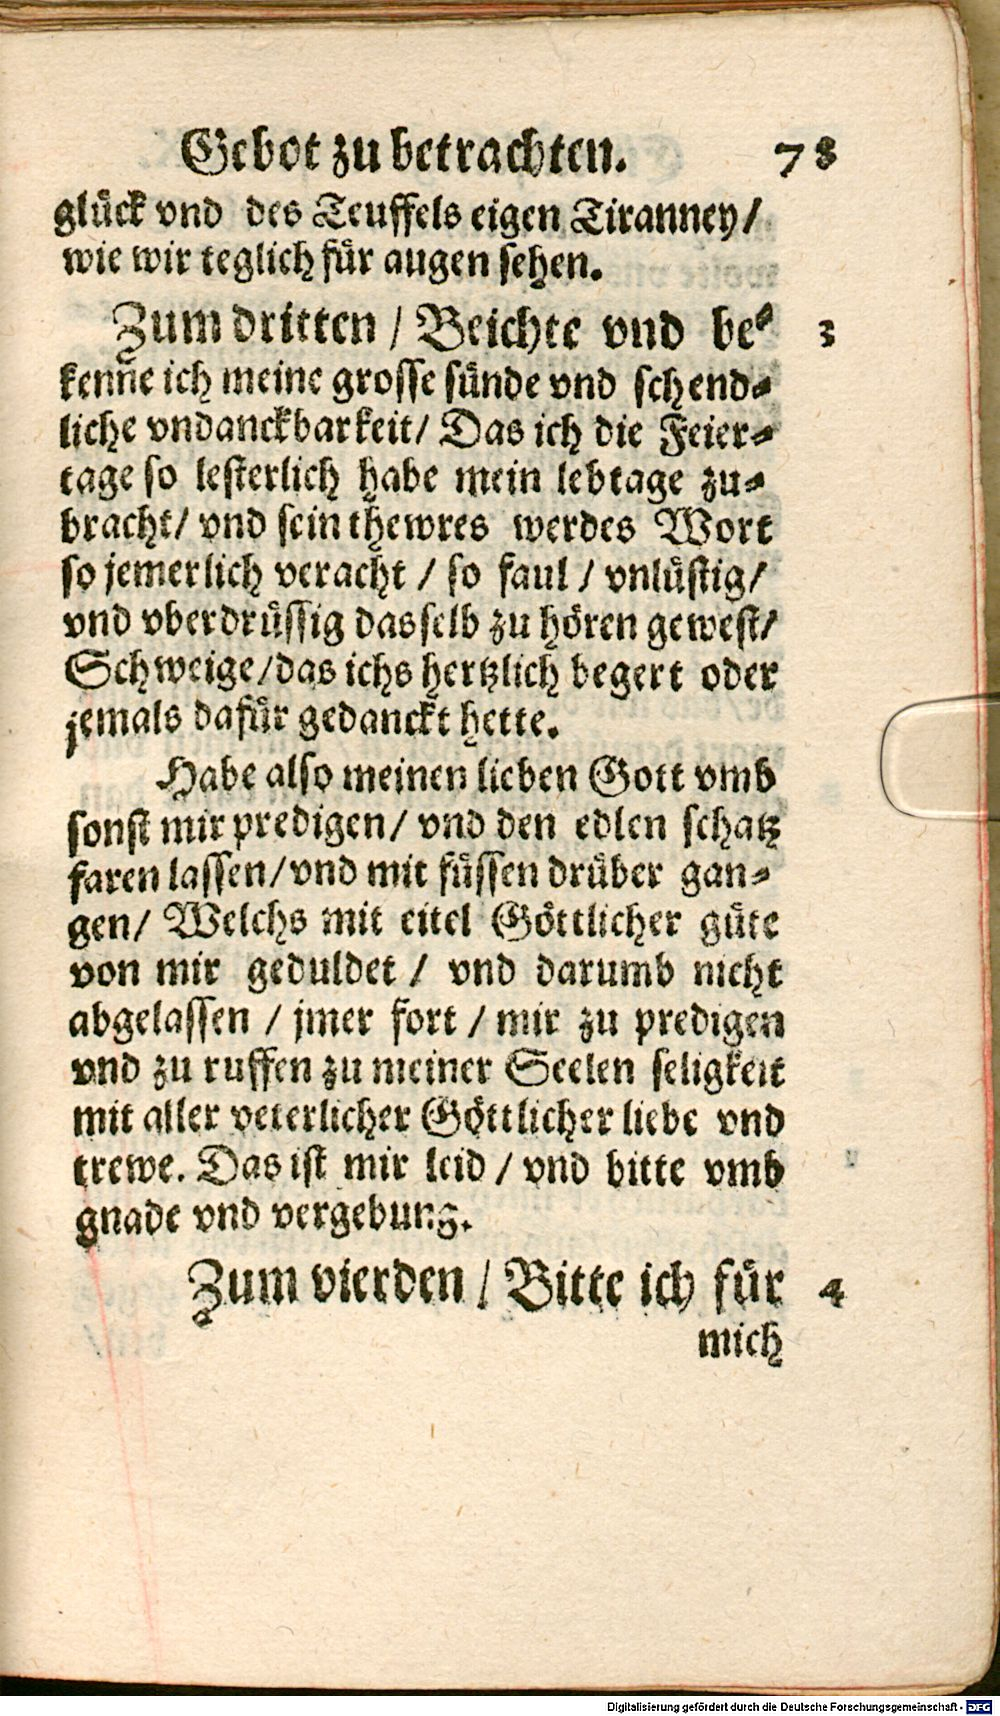 Gebot zu betrachten. 78
glück vnd des Teuffels eigen Tiranney/
wie wir teglich für augen sehen.
Zum dritten / Beichte vnd be⸗ 3
kenne ich meine grosse sünde vnd schend⸗
liche vndanckbarkeit/ Das ich die Feier⸗
tage so lesterlich habe mein lebtage zu⸗
bracht/ vnd sein thewres werdes Wort
so jemerlich veracht / so faul / vnlüstig/
vnd vberdrüssig dasselb zu hören gewest/
Schweige/das ichs hertzlich begert oder
jemals dafür gedanckt hette.
Habe also meinen lieben Gott vmb
sonst mir predigen/ vnd den edlen schatz
faren lassen/vnd mit füssen drüber gan⸗
gen/ Welchs mit eitel Göttlicher güte
von mir geduldet / vnd darumb nicht
abgelassen / jmer fort / mir zu predigen
vnd zu ruffen zu meiner Seelen seligkeit
mit aller veterlicher Göttlicher liebe vnd
trewe. Das ist mir leid / vnd bitte vmb
gnade vnd vergebung.
Zum vierden / Bitte ich für 4
mich
Digitalisierung gefördert durch die Deutsche Forschungsgemeinschaft - DFG